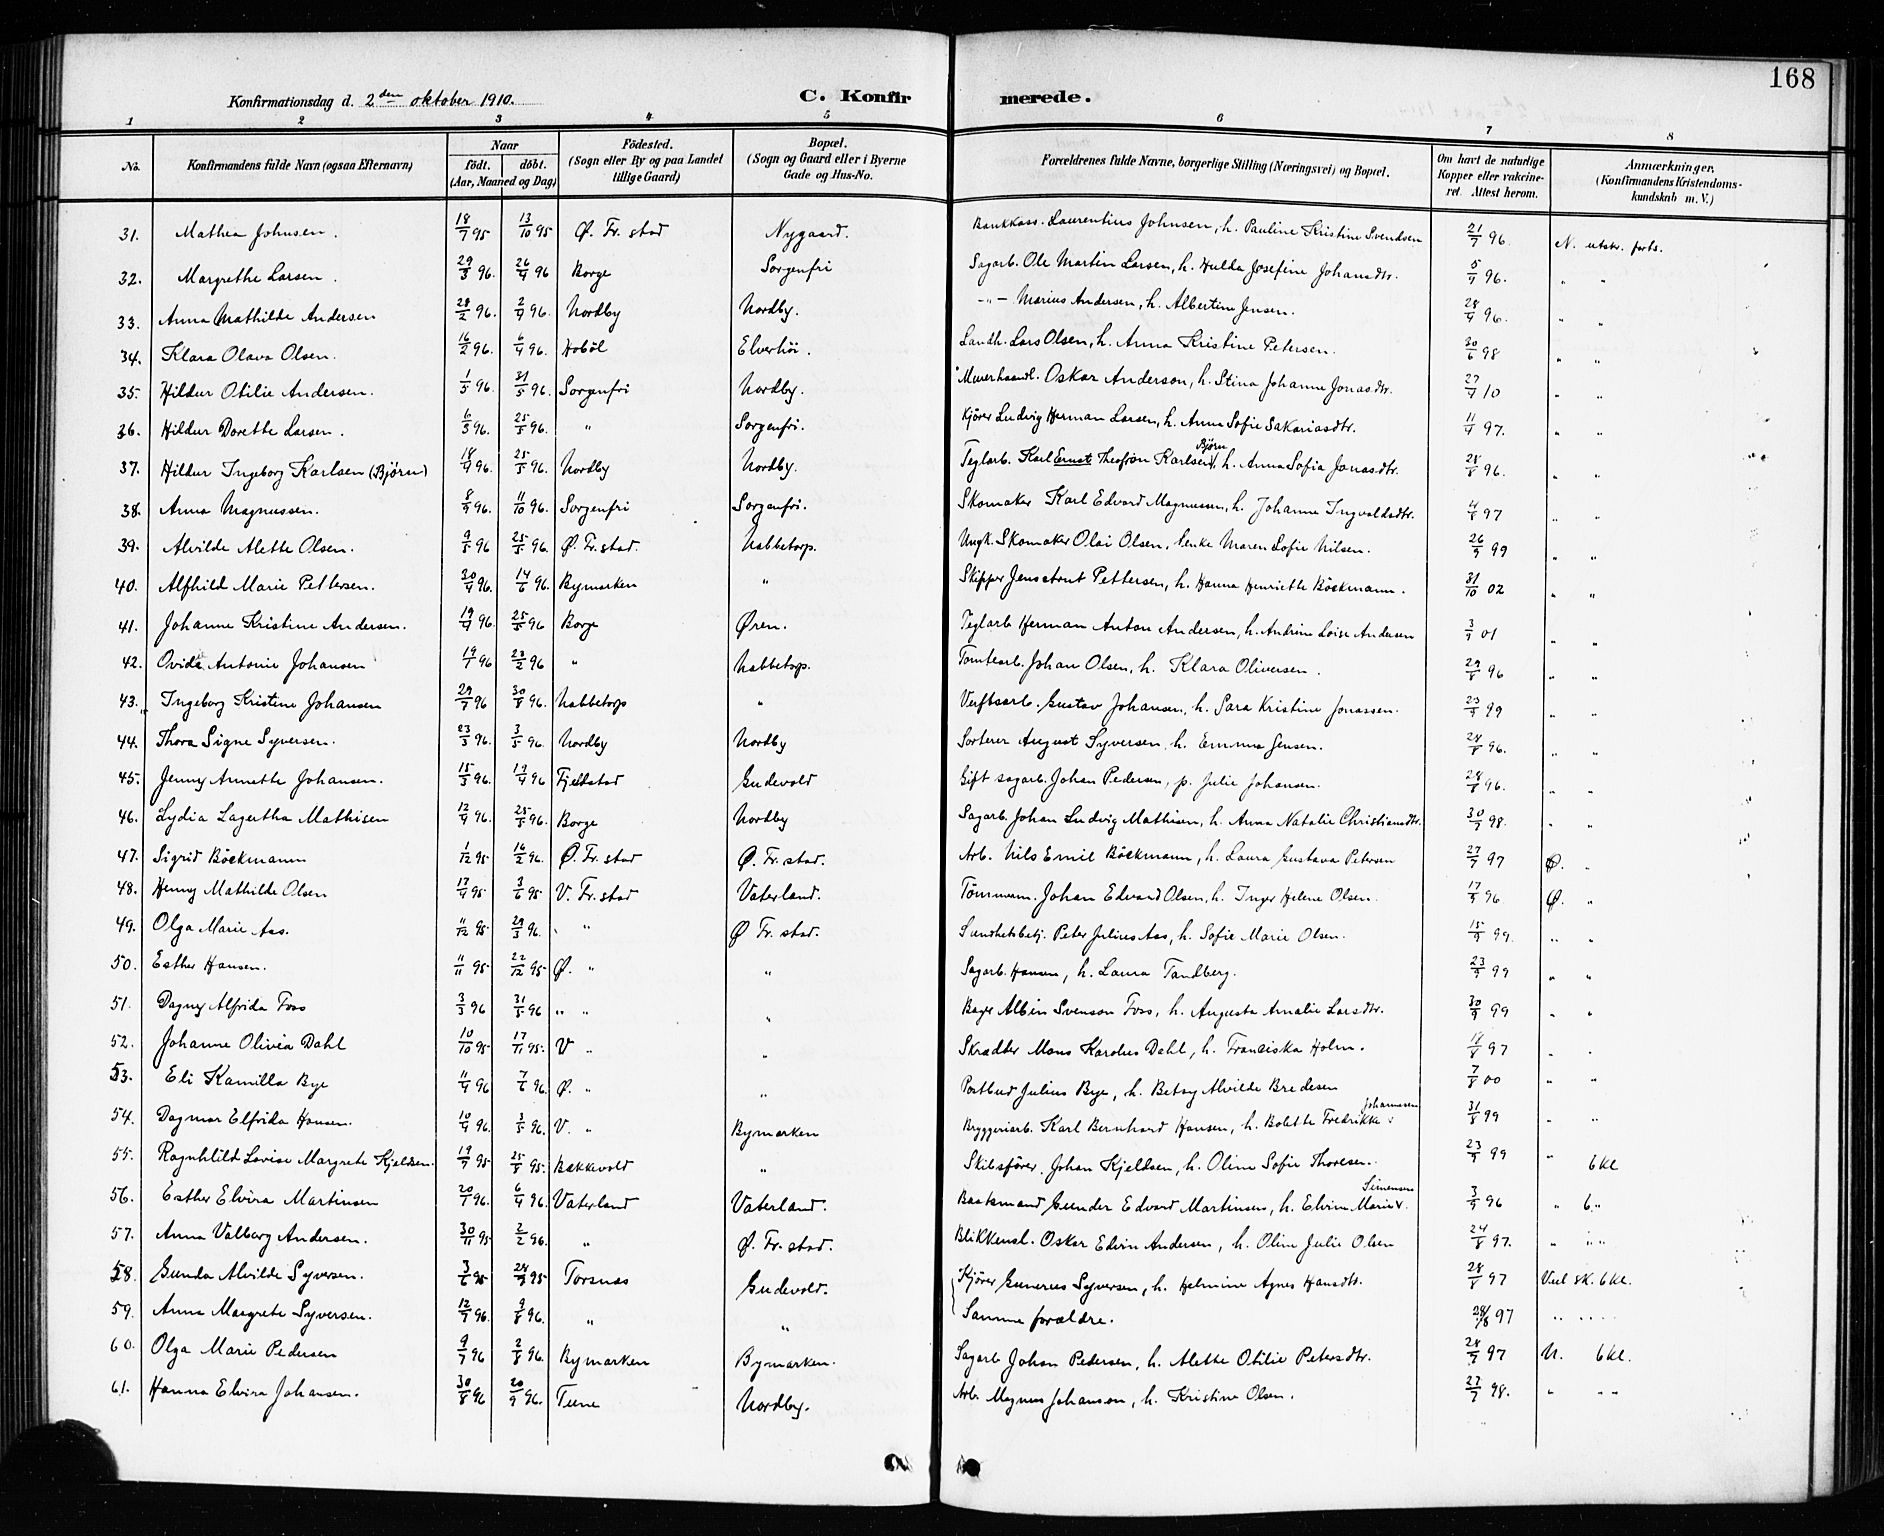 168
Konfirmationsdag d. 2den oktober 1910. C. Konfirmerede.
1 2 3 4 5 6 7 8
No. Konfirmandens fulde Navn (ogsaa Efternavn) Naar födt. döbt. (Aar, Maaned og Dag) Födested. (Sogn eller By og paa Landet tillige Gaard) Bopæl. (Sogn og Gaard eller i Byerne Gade og Hus-No. Forældrenes fulde Navne, borgerlige Stilling (Næringsvei) og Bopæl. Om havt de naturlige Kopper eller vakcineret. Attest herom. Anmærkninger. (Konfirmandens Kristendomskundskab m. V.)
31. Mathea Johnsen. 18/7 95 13/10 95 Ø. Fr. stad Nygaard. Bankkass. Laurentius Johnsen, h. Pauline Kristine Svendsen 21/7 96 N. utskr. forts.
32. Margrethe Larsen. 29/3 96. 26/4 96 Borge Sorgenfri Sagarb. Ole Martin Larsen, h. Hulda Josefine Johansdtr. 5/9 96. " "
33. Anna Mathilde Andersen 28/2 96. 2/4 96. Nordby Nordby. -"- Marius Andersen, h. Albertine Jensen. 28/9 96. " "
34. Klara Olava Olsen. 16/2 96. 6/4 96. Hobøl Elverhöi. Landh. Lars Olsen, h. Anna Kristine Petersen. 30/6 98 " "
35. Hildur Otilie Andersen. 1/5 96. 31/5 96. Sorgenfri Nordby. Murerhaandl. Oskar Anderson, h. Stina Johanne Jonasdtr. 27/9 10 " "
36. Hildur Dorette Larsen. 6/3 96. 25/5 96. " Sorgenfri. Kjører Ludvig Herman Larsen, h. Anna Sofie Sakariasdtr. 11/9 97. " "
37. Hildur Ingeborg Karlsen (Bjørn) 18/4 96. 25/5 96. Nordby Nordby. Teglarb. Karl Ernst Theofron Karlsen Bjørn, h. Anna Sofia Jonasdtr. 28/8 96. " "
38. Anna Magnussen. 8/9 96. 11/10 96. Sorgenfri Sorgenfri. Skomaker Karl Edvard Magnussen, h. Johanne Ingvaldsdtr. 4/8 97 " "
39. Alvilde Alette Olsen. 9/5 96 25/5 96. Ø. Fr. stad. Nabbetorp. Ungk. Skomaker Olai Olsen, Enke Maren Sofie Nilsen. 26/9 99 " "
40. Alfhild Marie Pettersen. 30/4 96. 14/6 96. Bymarken " Skipper Jens Arnt Pettersen, h. Hanna Henriette Böckmann. 31/10 02 " "
41. Johanne Kristine Andersen. 19/4 96. 25/5 96 Borge Øren. Teglarb Herman Anton Andersen, h. Andrine Loise Andersen 3/9 01 " "
42. Ovidi Antonie Johansen 19/1 96 23/2 96 " Nabbetorp. Tomtearb. Johan Olsen, h. Klara Oliversen. 29/8 96 " "
43. Ingeborg Kristine Johansen 29/7 96 30/8 96. Nabbetorp " Verftsarb. Gustav Johansen, h. Sara Kristine Jonassen. 23/9 99 " "
44. Thora Signe Syversen. 23/3 96. 3/5 96. Nordby Nordby Sorterer August Syversen, h. Emma Jensen. 28/8 96. " "
45. Jenny Annette Johansen. 15/3 96. 19/4 96 Fjeldstad Gudevold Gift sagarb. Johan Pedersen, p. Julie Johansen. 28/8 96. " "
46. Lydia Lagertha Mathisen 12/4 96. 25/5 96. Borge Nordby Sagarb. Johan Ludvig Mathisen, h. Anna Natalie Christiansdtr. 30/9 98. " "
47. Sigrid Böckmann 1/12 95 16/2 96. Ø. Fr. stad Ø. Fr. stad. Arb. Nils Emil Böckmann, h. Laura Gustava Petersen 27/9 97 Ø. "
48. Henny Mathilde Olsen 17/4 95 3/6 95 V. Fr. stad Vaterland. Tömmerm. Johan Edvard Olsen, h. Inger Helene Olsen. 17/9 96 Ø. "
49. Olga Marie Aas. 11/12 95. 29/3 96. " " Ø Fr. stad. Sundhetsbetj. Peter Julius Aas, h. Sofie Marie Olsen. 15/9 99. " "
50. Esther Hansen. 11/11 95 22/12 95 Ø. " " Sagarb. Hansen, h. Laura Tandberg. 23/9 99 " "
51. Dagny Alfrida Foss 3/3 96 31/5 96 " " " Bager Albin Svenson Foss, h. Augusta Amalie Larsdtr. 30/9 99 " "
52. Johanne Olivia Dahl 10/10 95 17/11 95. V " " Skrædder Mons Karolus Dahl, h. Franciska Holm. 18/8 97 " "
53. Eli Kamilla Bye 11/4 96 7/6 96. Ø. " " Postbud Julius Bye, h. Betsy Alvilde Bredesen 7/8 00 " "
54. Dagmar Elfrida Hansen. 10/4 96. 3/5 96. V. " Bymarken Bryggeriarb. Karl Bernhard Hansen, h. Bolette Fredrikke Johannesen 31/8 99 " "
55. Ragnhild Lovise Margrete Kjeldsen. 19/7 95 25/8 95. Bakkevold " Skibsfører. Johan Kjeldsen, h. Oline Sofie Thoresen. 23/9 99 " 6 kl
56. Esther Elvira Martinsen 20/1 96. 6/4 96. Vaterland Vaterland. Baatsmand Gunder Edvard Martinsen, h. Elvine Marie Simensen 3/9 96 " 6 "
57. Anna Valborg Andersen. 30/11 95 2/2 96. " Ø. Fr. stad. Blikkensl. Oskar Edvin Andersen, h. Oline Julie Olsen 24/8 97. " " "
58. Gunda Alvilde Syversen. 3/6 95 28/7 95 Torsnes Gudevold. Kjører Gunerius Syversen, h. Helmine Agnes Hansdtr. 28/8 97 Væl sk. 6 kl.
59. Anna Margrete Syversen. 12/7 96. 9/8 96. " " Samme forældre. 28/8 97 " " " "
60. Olga Marie Pedersen 9/7 96 2/8 96. Bymarken Bymarken. Sagarb Johan Pedersen, h. Alette Otilie Petersdtr. 28/9 97 N. 6 kl.
61. Hanna Elvira Johansen. 30/8 96 20/9 96. Tune Nordby. Arb. Magnus Johanson, h. Kristine Olsen. 27/9 98. " " "